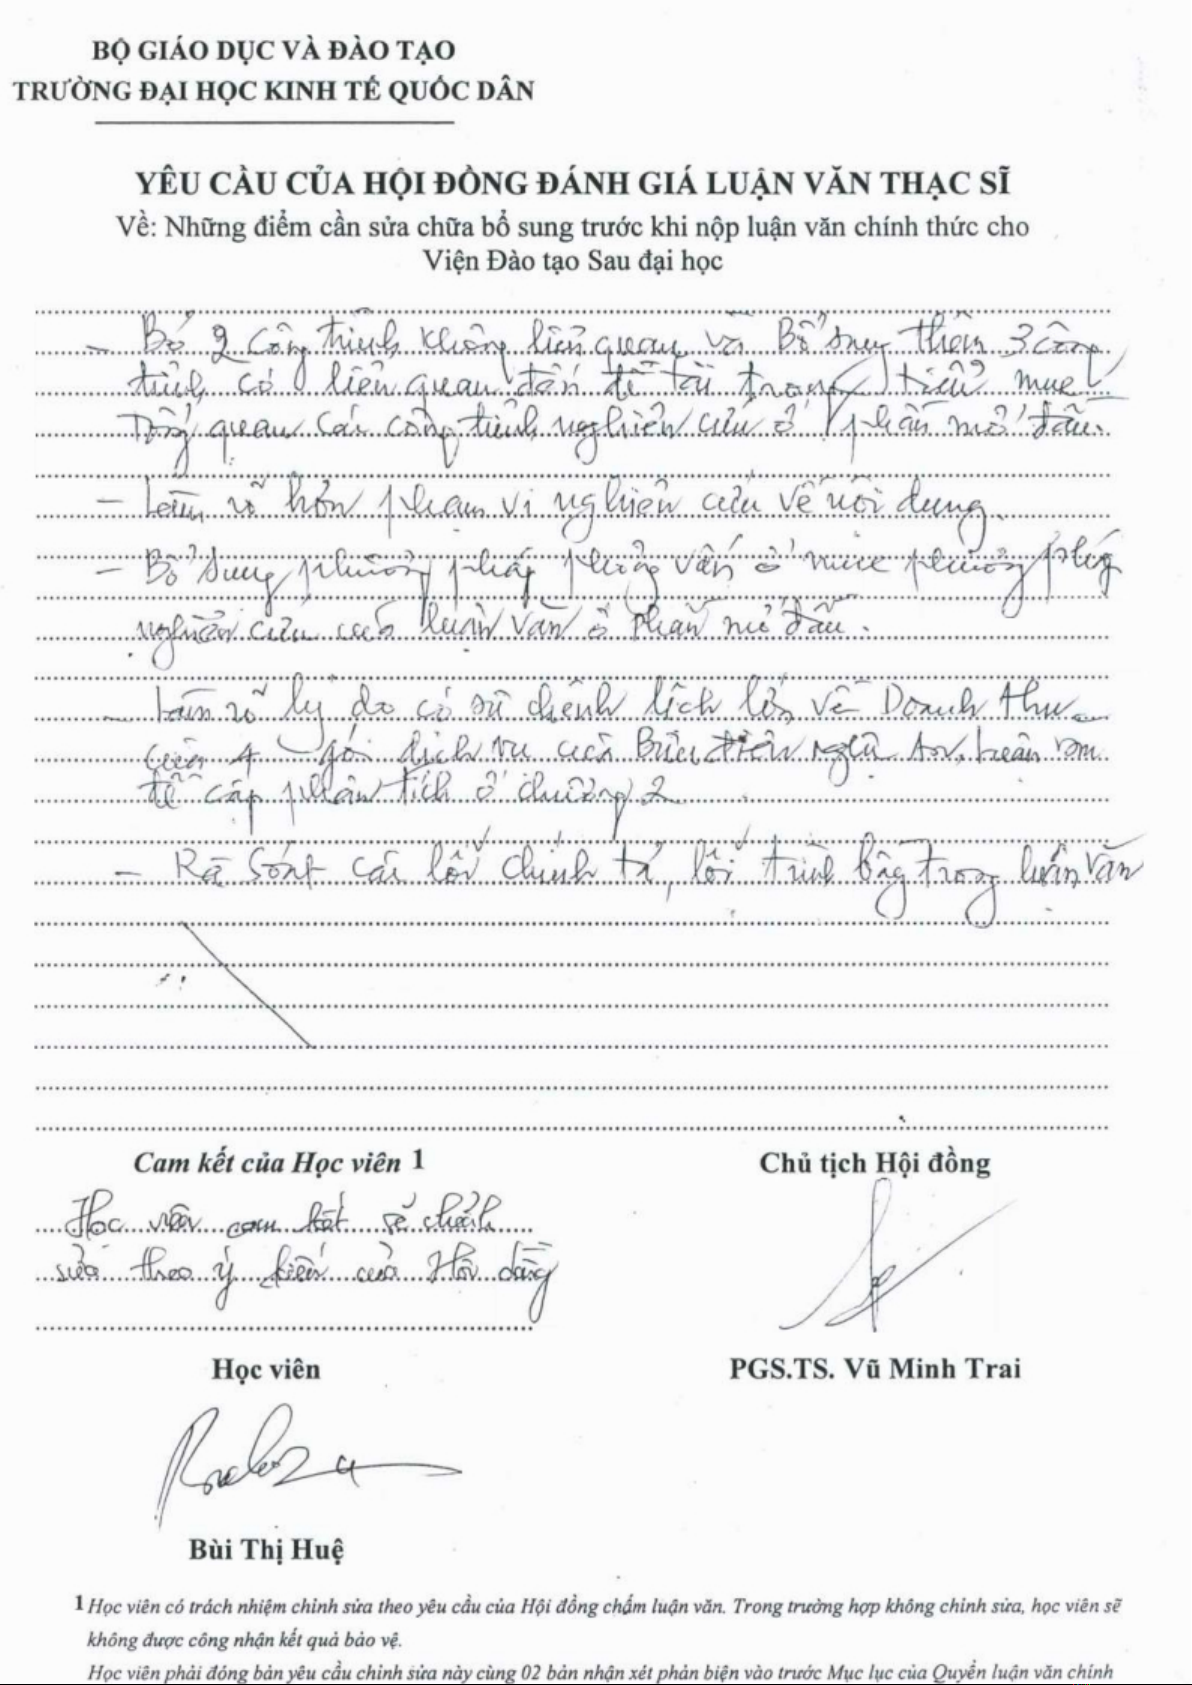 BỘ GIÁO DỤC VÀ ĐÀO TẠO
TRƯỜNG ĐẠI HỌC KINH TẾ QUỐC DÂN
YÊU CẦU CỦA HỘI ĐỒNG ĐÁNH GIÁ LUẬN VĂN THẠC SĨ
Về: Những điểm cần sửa chữa bổ sung trước khi nộp luận văn chính thức cho
Viện Đào tạo Sau đại học
- Bỏ 2 công trình không liên quan và Bổ sung thêm 3 công
trình có liên quan đến đề tài trong tiểu mục
Tổng quan các công trình nghiên cứu ở phần mở đầu.
- Làm rõ hơn phạm vi nghiên cứu về nội dung.
- Bổ sung phương pháp phỏng vấn ở mục phương pháp
nghiên cứu của luận văn ở phần mở đầu.
- Làm rõ lý do có sự chênh lệch lớn về Doanh thu
của 4 gói dịch vụ của Bưu điện Nghệ An, luận văn
đề cập phân tích ở chương 2
- Rà soát các lỗi chính tả, lỗi trình bày trong luận văn
Cam kết của Học viên 1
Chủ tịch Hội đồng
Học viên cam kết sẽ chỉnh
sửa theo ý kiến của Hội đồng
Học viên
PGS.TS. Vũ Minh Trai
Bùi Thị Huệ
1 Học viên có trách nhiệm chỉnh sửa theo yêu cầu của Hội đồng chấm luận văn. Trong trường hợp không chỉnh sửa, học viên sẽ
không được công nhận kết quả bảo vệ.
Học viên phải đóng bản yêu cầu chỉnh sửa này cùng 02 bản nhận xét phản biện vào trước Mục lục của Quyển luận văn chính